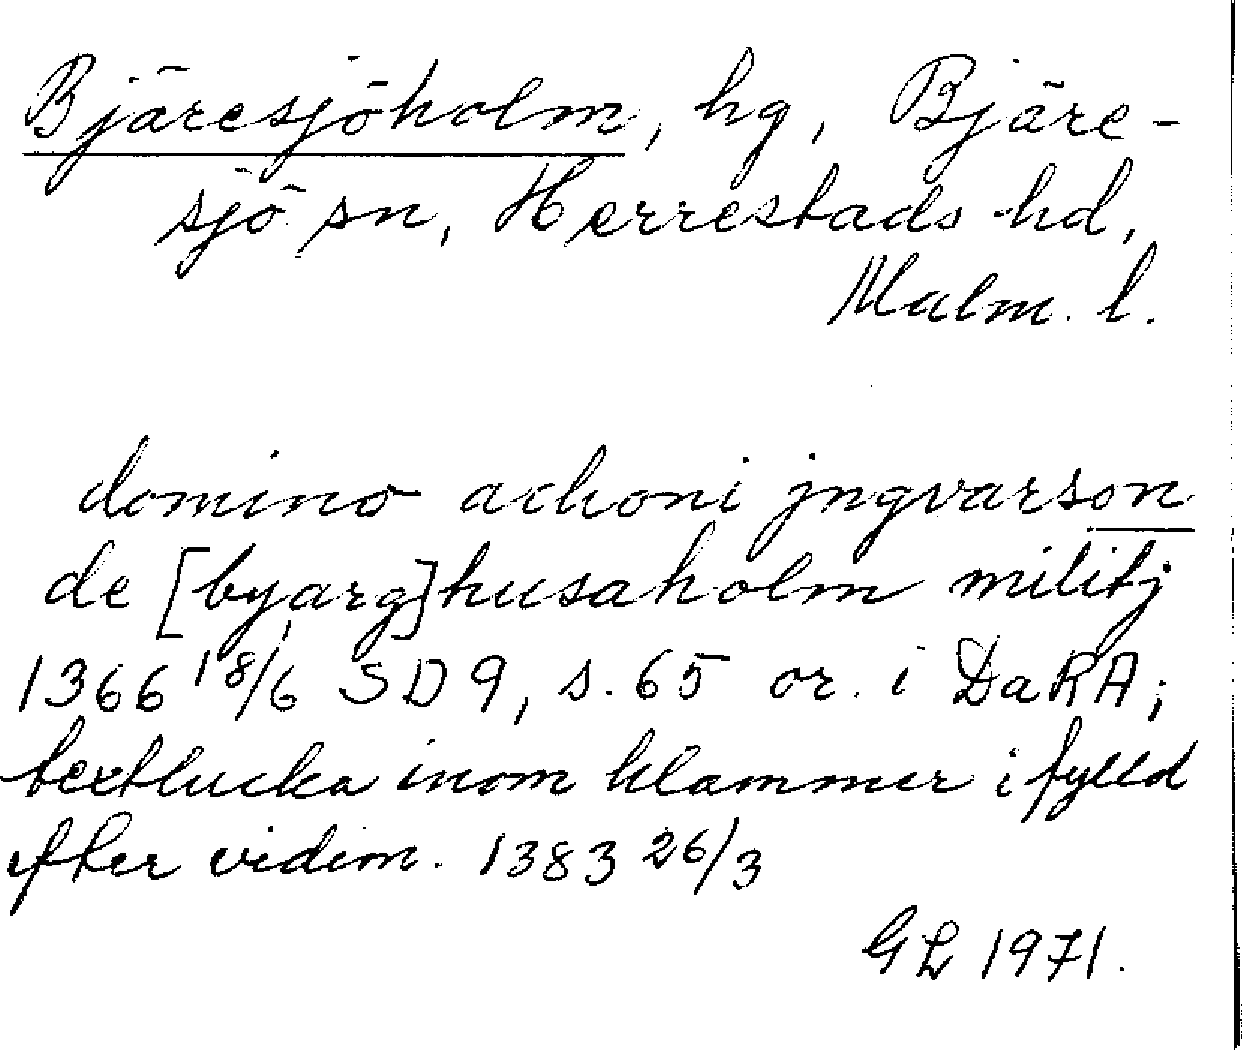 Bjäresjöholm, hg, Bjäre-
sjö sn, Herrestads hd,
Malm. l.
domino achoni jngvarson
de [byarg]husaholm militj
1366 18/6 SD 9, s. 65 or. i DaRA;
textlucka inom klammer ifylld
efter vidim. 1383 26/3
GL 1971.